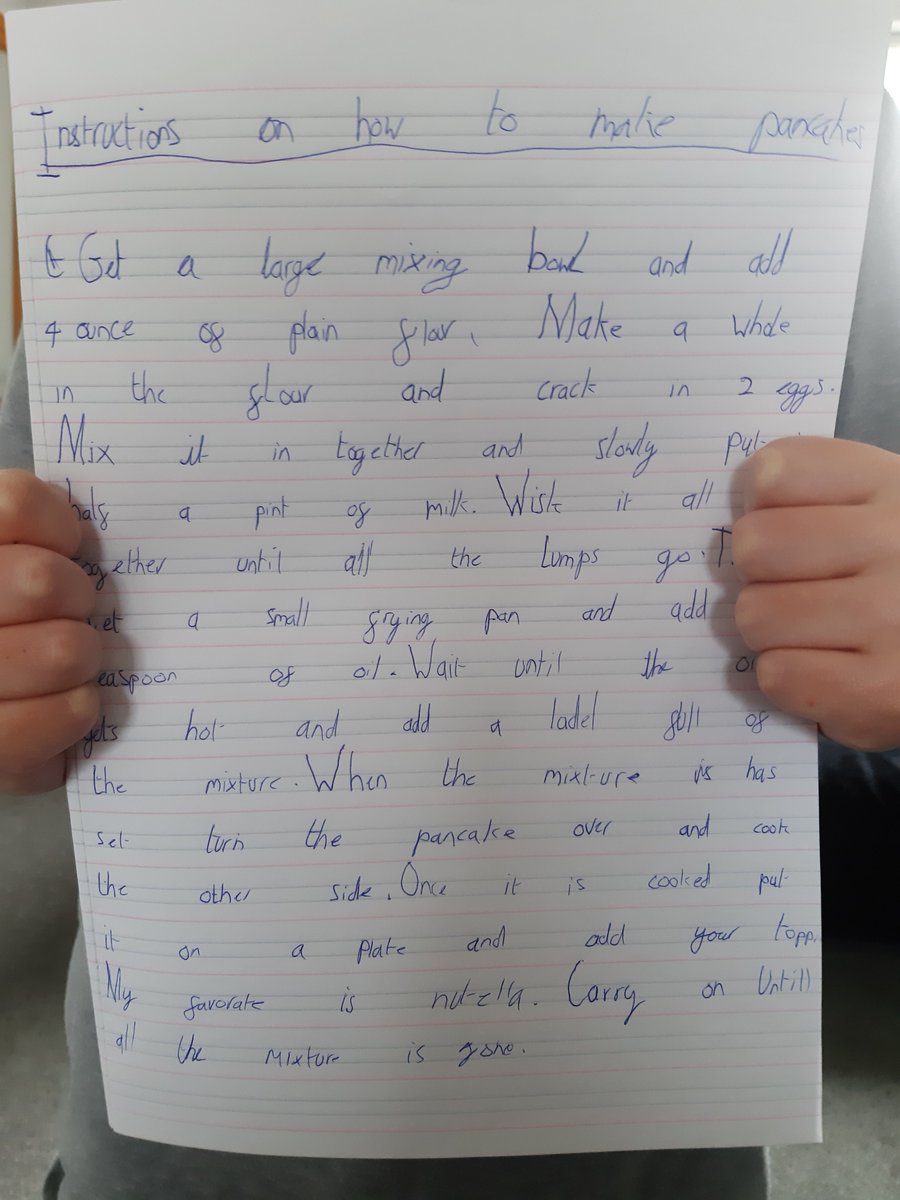 Instructions on how to make pancakes
Get a large mixing bowl and add
4 ounce of plain flar. Make a whole
in the flour and crack in 2 eggs.
Mix it in together and slowly put
half a pint of milk. Wisk it all
together until all the lumps go.
a small frying pan and add
teaspoon of oil. Wait until the
gets hot and add a ladel full of
the mixture. When the mixture is has
set turn the pancake over and cook
the other side. Once it is cooked put
it on a plate and add your
My favorate is nutella. Carry on Untill
all the mixture is gone.